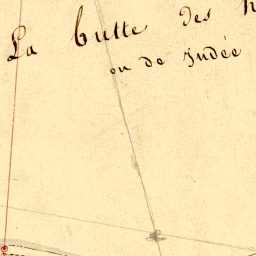 La butte des
ou de Judée